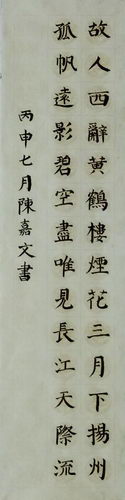 故人西辭黃鶴樓煙花三月下揚州
孤帆遠影碧空盡唯見長江天際流
丙申七月陳嘉文書